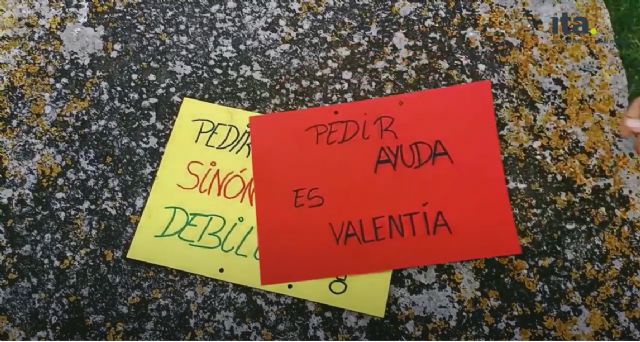 ita.
PEDIR
SINÓN
DEBIL
PEDIR
AYUDA
ES
VALENTÍA